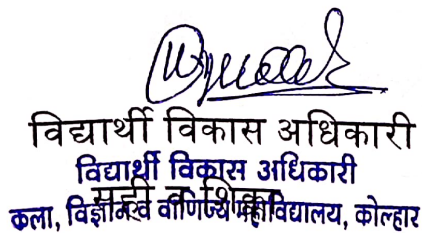 विद्यार्थी विकास अधिकारी
विद्यार्थी विकास अधिकारी
सही व शिक्का
कला, विज्ञान व वाणिज्य महाविद्यालय, कोल्हार